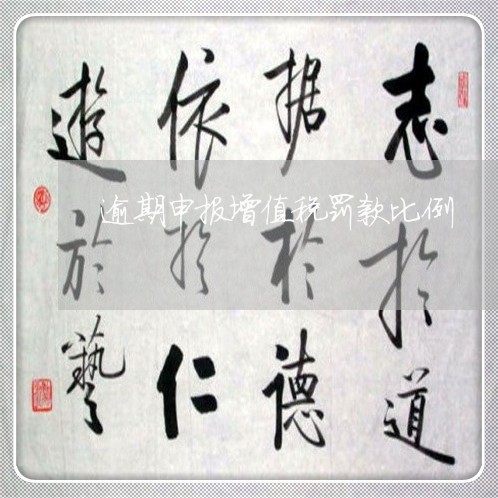 志於道
据於德
依於仁
遊於藝
逾期申报增值税罚款比例